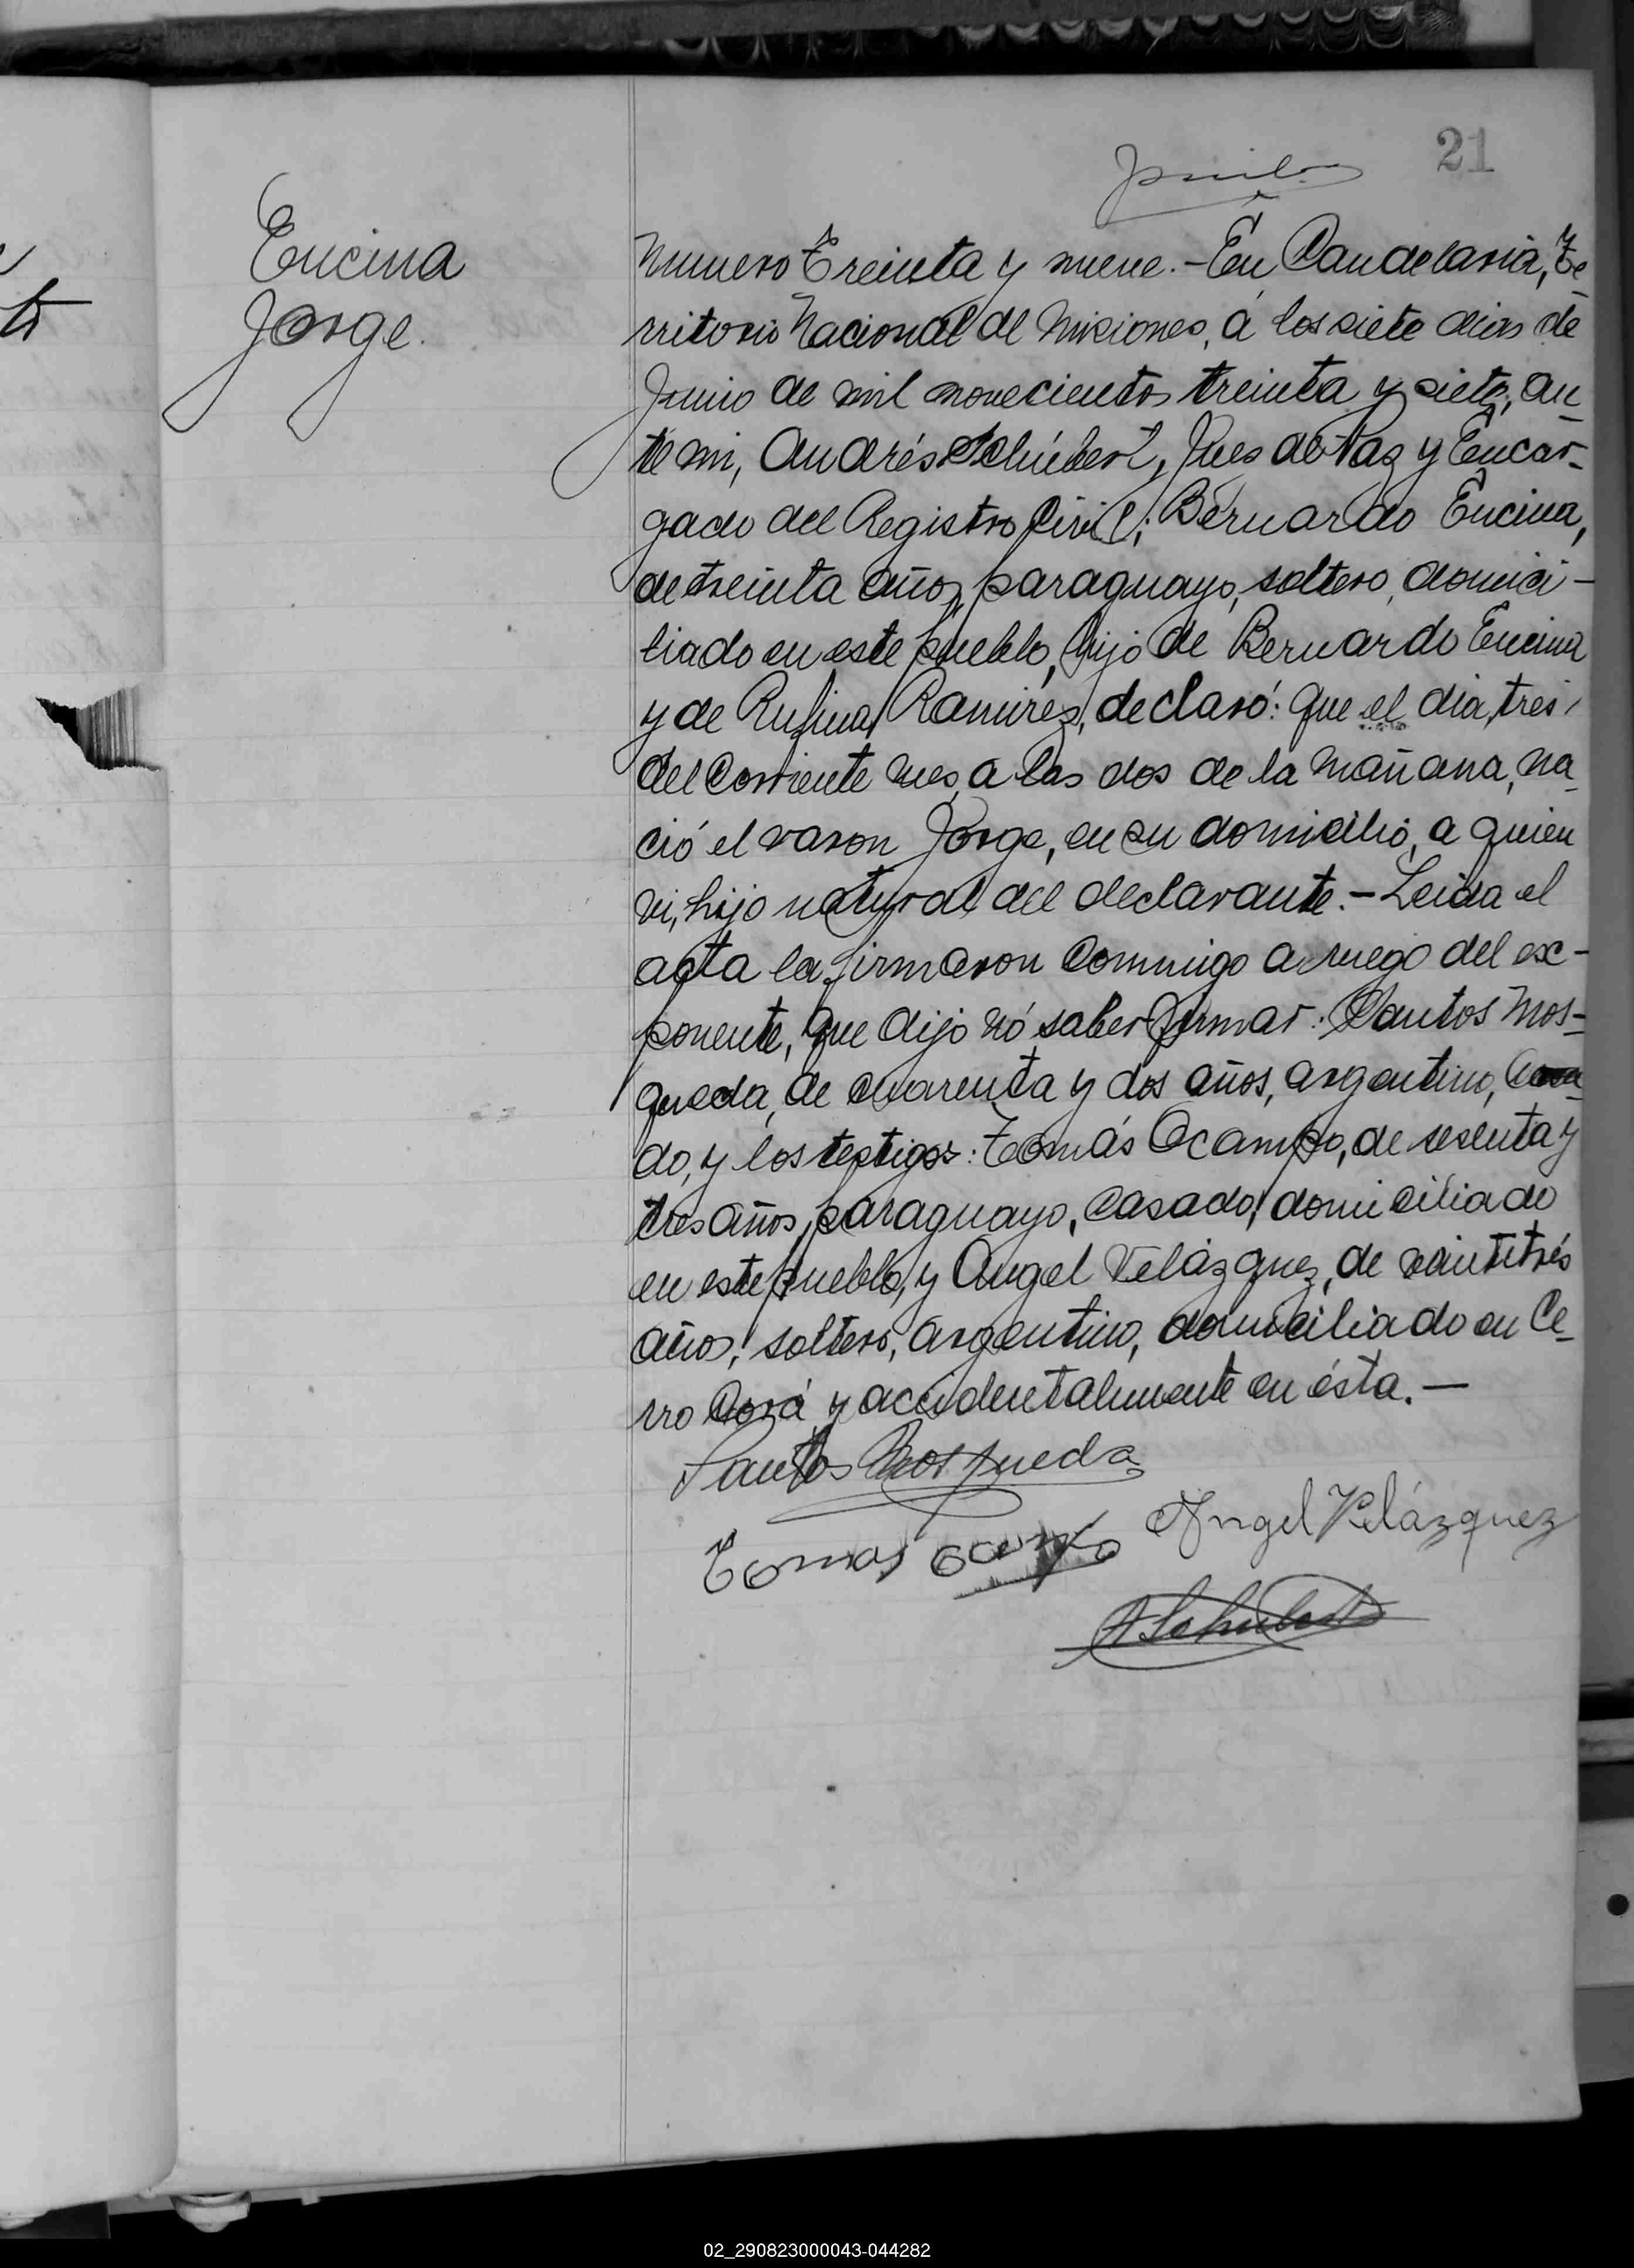 21
Encina
Jorge.
Numero Treinta y nueve.- En Candelaria, Te-
rritorio Nacional de Misiones, á los siete dias de
Junio de mil novecientos treinta y siete, an-
te mi, Andrés Schúbert, Jues de Paz y Encar-
gado del Registro Civil; Bernardo Encina,
de treinta años, paraguayo, soltero, domici-
liado en este pueblo, hijo de Bernardo Encina
y de Rufina Ramírez, declaró: que el dia, tres,
del corriente mes, a las dos de la mañana, na-
ció el varon Jorge, en su domicilio, a quien
vi, hijo natural del declarante.- Leida el
acta la firmaron conmigo a ruego del ex-
ponente, que dijo nó saber firmar: Santos Mos-
queda, de cuarenta y dos años, argentino, casa-
do, y los testigos: Tomás Ocampo, de sesenta y
tres años, paraguayo, casado, domiciliado
en este pueblo, y Angel Velázquez, de veintitrés
años, soltero, argentino, domiciliado en Ce-
rro Corá y accidentalmente en ésta.-
Santos Mosqueda
Angel Velázquez
Tomas Ocampo
ASchubert
02_290823000043-044282